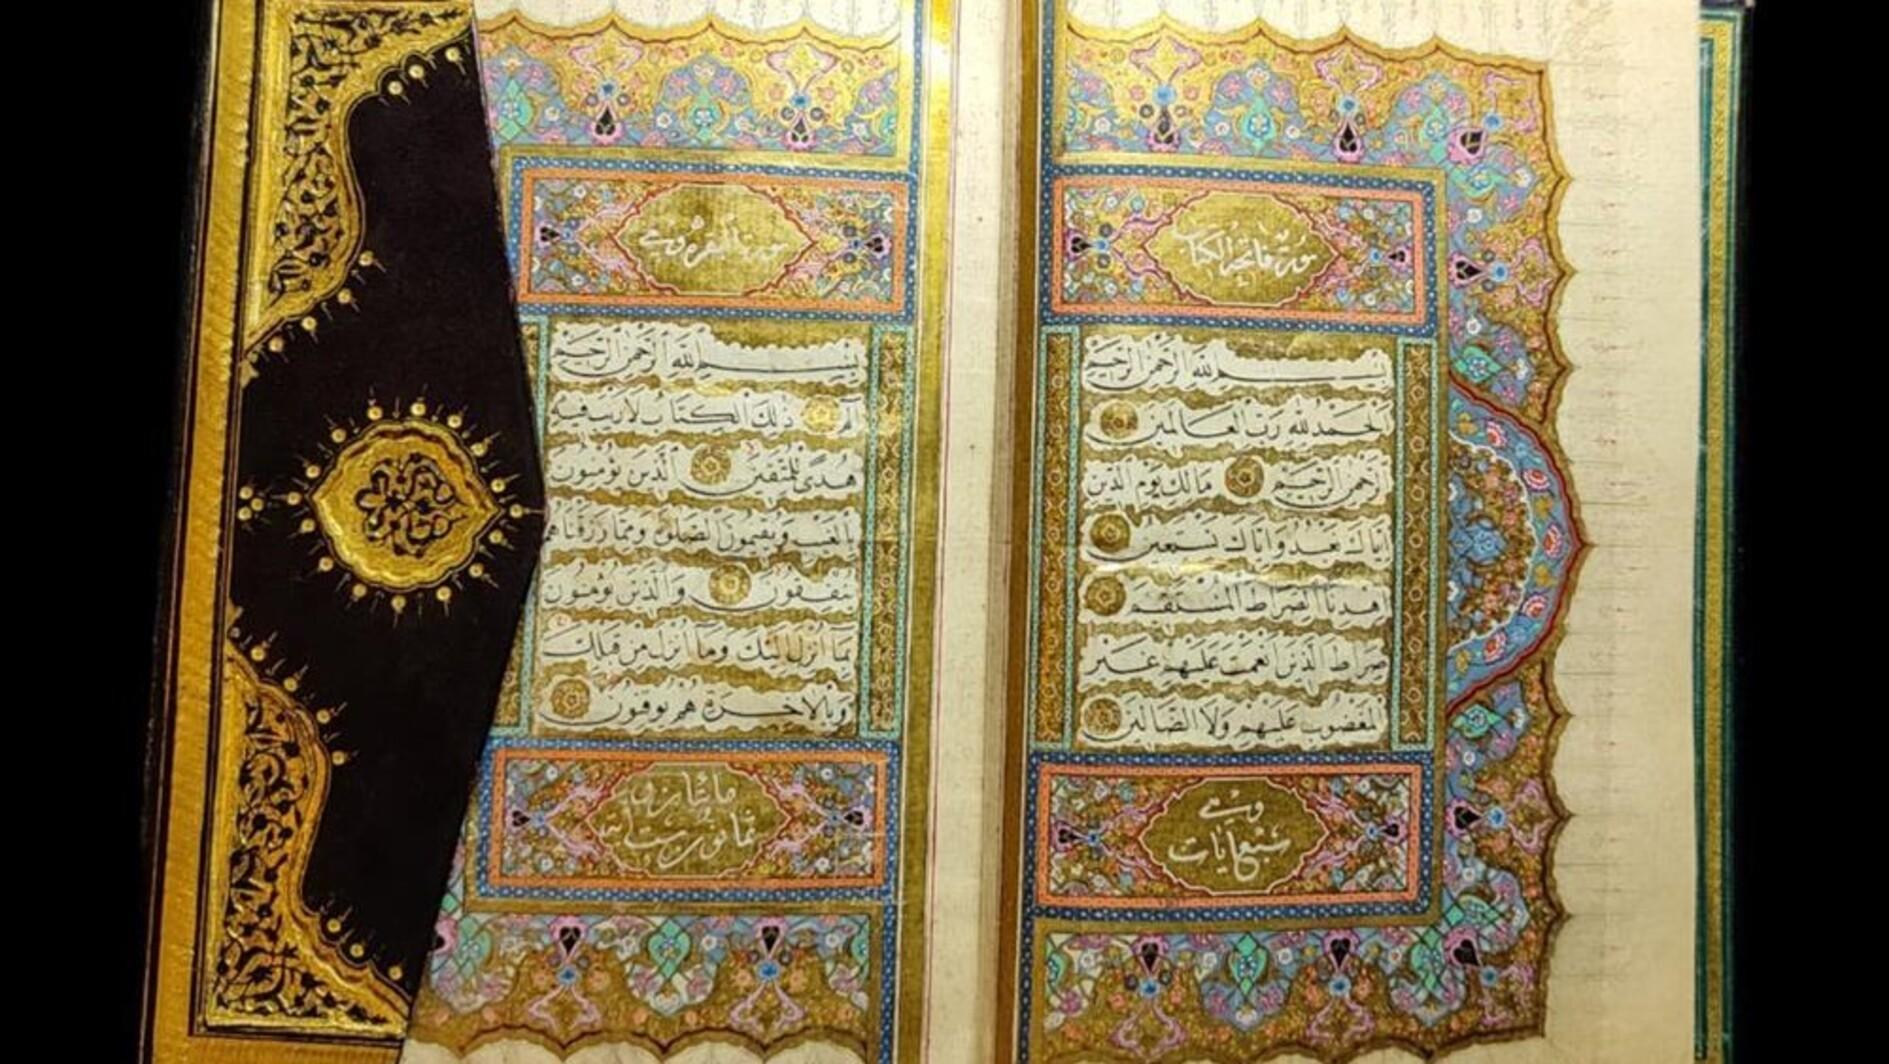 سورة فاتحة الكتاب
بِسْمِ اللهِ الرَّحْمٰنِ الرَّحِيمِ
اَلْحَمْدُ لِلّٰهِ رَبِّ الْعَالَمِينَ
اَلرَّحْمٰنِ الرَّحِيمِ مَالِكِ يَوْمِ الدِّينِ
اِيَّاكَ نَعْبُدُ وَاِيَّاكَ نَسْتَعِينُ
اِهْدِنَا الصِّرَاطَ الْمُسْتَقِيمَ
صِرَاطَ الَّذِينَ اَنْعَمْتَ عَلَيْهِمْ غَيْرِ
الْمَغْضُوبِ عَلَيْهِمْ وَلَا الضَّالِّينَ
وهي
سبع آيات
سورة البقرة وهي
بِسْمِ اللهِ الرَّحْمٰنِ الرَّحِيمِ
الٓمٓ ذٰلِكَ الْكِتَابُ لَا رَيْبَ فِيهِ
هُدًى لِلْمُتَّقِينَ اَلَّذِينَ يُؤْمِنُونَ
بِالْغَيْبِ وَيُقِيمُونَ الصَّلٰوةَ وَمِمَّا رَزَقْنَاهُمْ
يُنْفِقُونَ وَالَّذِينَ يُؤْمِنُونَ
بِمَا اُنْزِلَ اِلَيْكَ وَمَا اُنْزِلَ مِنْ قَبْلِكَ
وَبِالْاٰخِرَةِ هُمْ يُوقِنُونَ
مائتان و
ثمانون آية